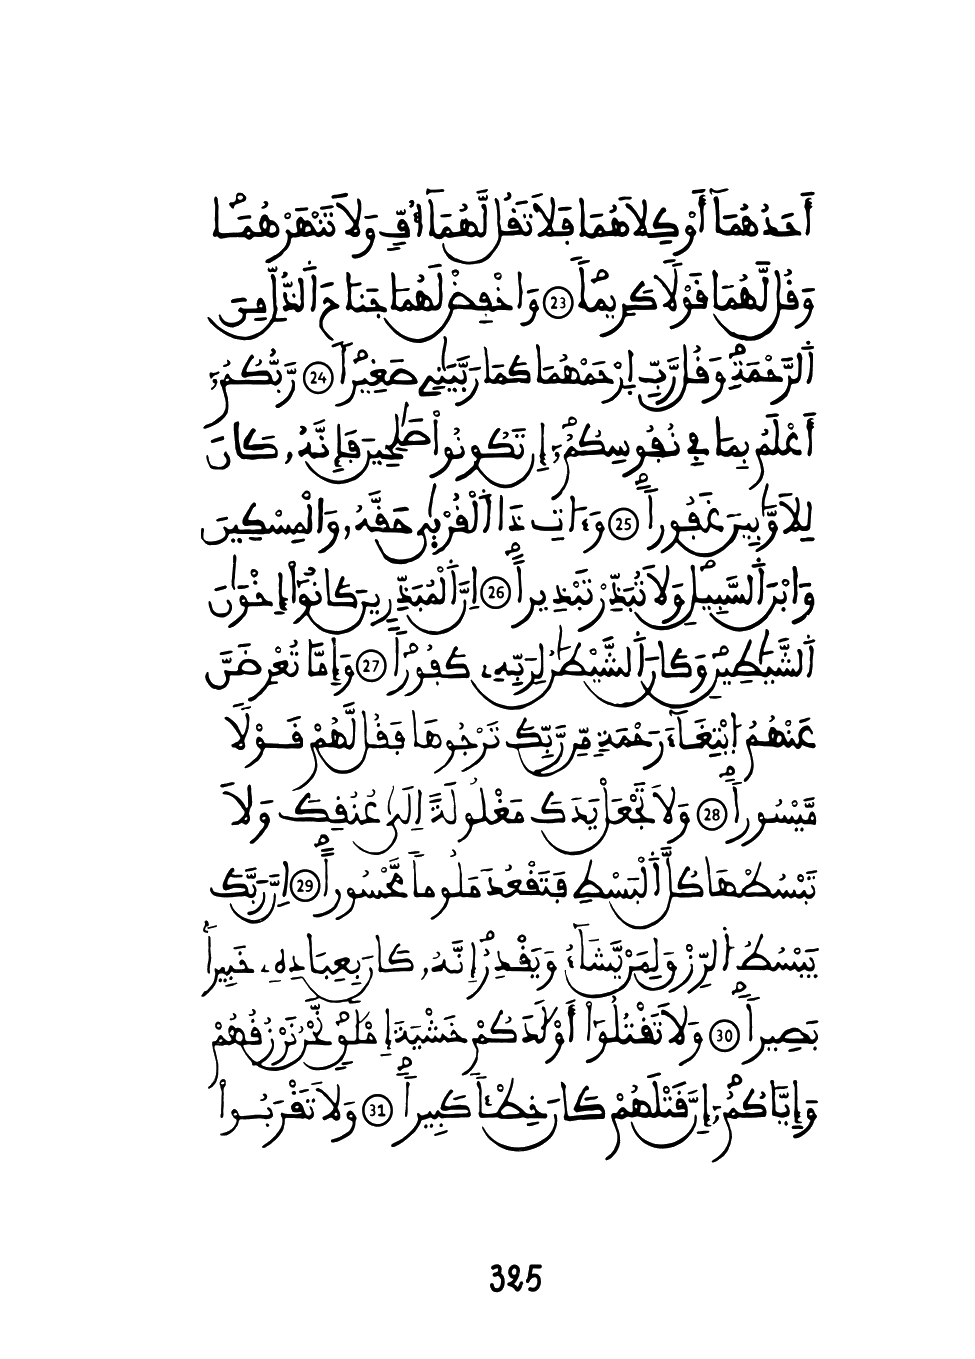 أَحَدُهُمَآ أَوْ كِلَاهُمَا فَلَا تَقُل لَّهُمَآ أُفِّ وَلَا تَنْهَرْهُمَا
وَقُل لَّهُمَا قَوْلًا كَرِيمًا 23 وَاخْفِضْ لَهُمَا جَنَاحَ اَلذُّلِّ مِنَ
اَلرَّحْمَةِ وَقُل رَّبِّ اِرْحَمْهُمَا كَمَا رَبَّيَٰنِے صَغِيرًا 24 رَّبُّكُمُۥٓ
أَعْلَمُ بِمَا فِے نُفُوسِكُمُۥٓ إِن تَكُونُواْ صَٰلِحِينَ فَإِنَّهُۥ كَانَ
لِلَاوَّٰبِينَ غَفُورًا 25 وَءَاتِ ذَا اَلْقُرْبَىٰ حَقَّهُۥ وَالْمِسْكِينَ
وَابْنَ اَلسَّبِيلِ وَلَا تُبَذِّرْ تَبْذِيرًا 26 اِنَّ اَلْمُبَذِّرِينَ كَانُوٓاْ إِخْوَٰنَ
اَلشَّيَٰطِينِ وَكَانَ اَلشَّيْطَٰنُ لِرَبِّهِۦ كَفُورًا 27 وَإِمَّا تُعْرِضَنَّ
عَنْهُمُ اُبْتِغَآءَ رَحْمَةٍ مِّن رَّبِّكَ تَرْجُوهَا فَقُل لَّهُمْ قَوْلًا
مَّيْسُورًا 28 وَلَا تَجْعَلْ يَدَكَ مَغْلُولَةً اِلَىٰ عُنُقِكَ وَلَا
تَبْسُطْهَا كُلَّ اَلْبَسْطِ فَتَقْعُدَ مَلُومًا مَّحْسُورًا 29 اِنَّ رَبَّكَ
يَبْسُطُ اُلرِّزْقَ لِمَنْ يَّشَآءُ وَيَقْدِرُ إِنَّهُۥ كَانَ بِعِبَادِهِۦ خَبِيرًا
بَصِيرًا 30 وَلَا تَقْتُلُوٓاْ أَوْلَٰدَكُمْ خَشْيَةَ إِمْلَٰقٍ نَّحْنُ نَرْزُقُهُمْ
وَإِيَّاكُمُۥٓ إِنَّ قَتْلَهُمْ كَانَ خِطْـًٔا كَبِيرًا 31 وَلَا تَقْرَبُواْ
325